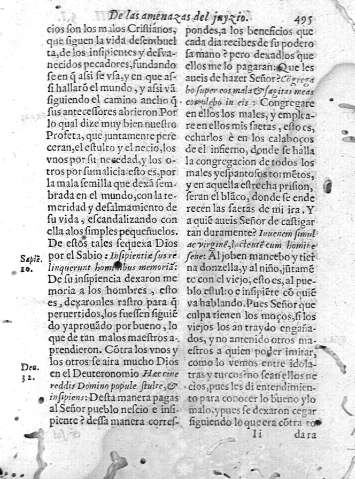 De las amenazas del juyzio. 495
cios son los malos Cristiãnos,
que siguen la vida desembuel
ta, de los insipientes y desva-
necidos pecadores, fundando
se en q̃ assi se vsa, y en que as-
si hallarõ el mundo, y assi vã
siguiendo el camino ancho q̃
sus antecessores abrieron. Por
lo qual dize muy bien nuestro
Profeta, que juntamente pere
ceran, el estulto y el necio, los
vnos por su necedad, y los o-
tros por su malicia: esto es, por
la mala semilla que dexã sem-
brada en el mundo, con la te-
meridad y desalmamiento de
su vida, escandalizando con
ella a los simples pequeñuelos.
De estos tales se quexa Dios
por el Sabio: Insipientiæ suæ re
linquerunt hominibus memoriã:
De su insipiencia dexaron me
noria a los hombres, esto
es, dexaronles rastro para q̃
peruertidos, los fuessen siguiẽ
do y aprouãdo por bueno, lo
que de tan malos maestros a-
prendieron. Cõtra los vnos y
los otros se aira mucho Dios
en el Deuteronomio Hæccine
reddis Domino popule stulte, &
insipiens: Desta manera pagas
al Señor pueblo necio e insi-
piente? dessa manera corres-
Sapiẽ.
10.
Deu.
32.
pondes, a los beneficios que
cada dia recibes de su podero
sa mano? pero dexadlos que
ellos me lo pagaran: Que les
aueis de hazer Señor? Cõgrega
bo super eos mala & sagitas meas
complebo in eis: Congregare
en ellos los males, y emplea-
re en ellos mis saetas, esto es,
echarlos è en los calaboços
de el infierno, donde se halla
la congregacion de todos los
males y espantosos tormẽtos,
y en aquella estrecha prision,
seran el blãco, donde se ende
recen las saetas de mi ira. Y a
quiẽ aueis Señor de castigar
tan duramente? Iuuenem simul
ac virginẽ, lactentẽ cum homine
sene: Al joben mancebo y tier
na donzella, y al niño, jũtamẽ
te con el viejo, esto es, al pue-
blo estulto e insipiẽte cõ quiẽ
va hablando. Pues Señor que
culpa tienen los moços, si los
viejos los an traydo engaña-
dos, y no an tenido otros ma-
estros a quien poder imitar,
como lo vemos entre idola-
tras y turcos? no sean ellos ne
cios, pues les di entendimien-
to para conocer lo bueno y lo
malo, y pues se dexaron cegar
siguiendo lo que era cõtra to
Ii dara